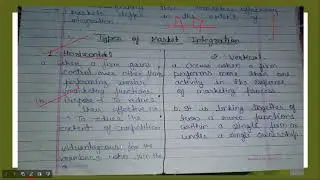 integration
in the extent of
Types of Market Integration
1. Horizontal
a. when a firm gains
control over other firms
performing similar
marketing functions
b. Purpose → To reduce
their effective no
→ To reduce the
extent of competition
Advantageous for the
members who join the
2. Vertical
a. Occurs when a firm
performs more than one
activity in the sequence
of marketing process
b. It is linking together of
two a more functions
within a single firm
under a single ownership.